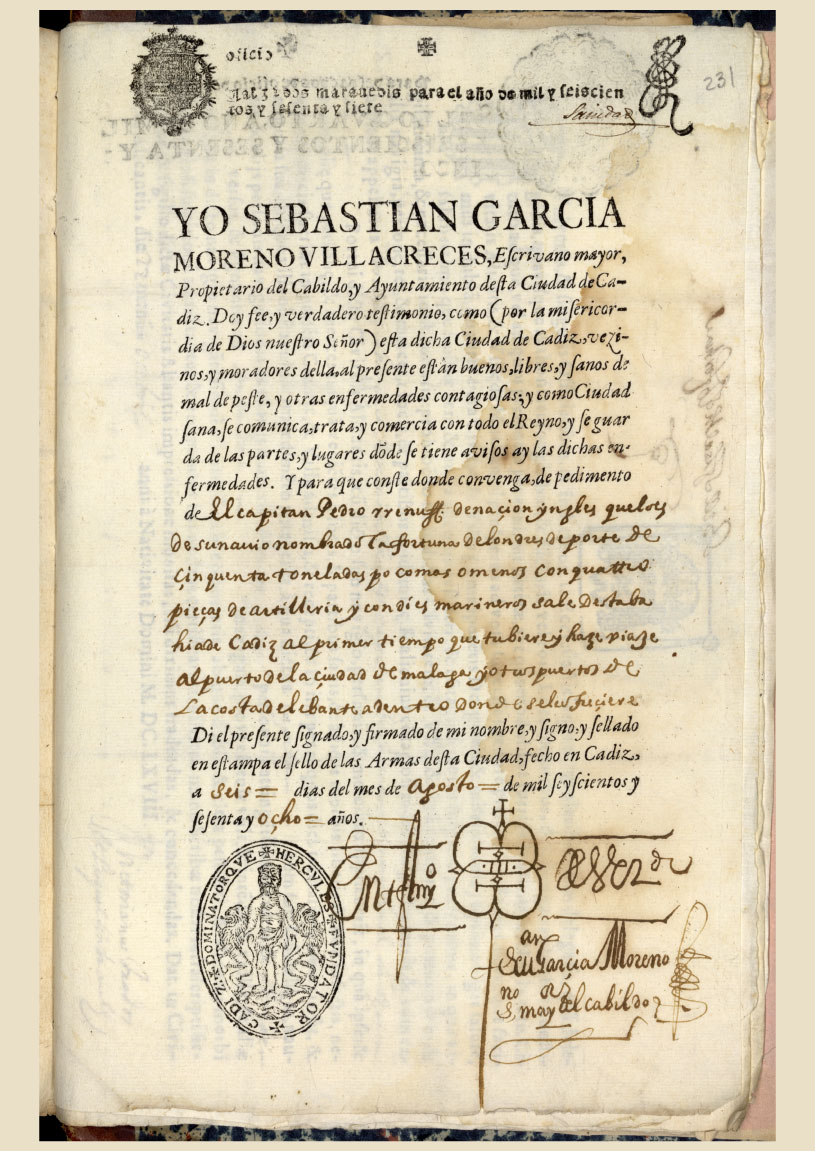 oficio
231
maravedis para el año de mil y seiscien
tos, y sesenta y siete
Sanidad
YO SEBASTIAN GARCIA
MORENO VILLACRECES, Eſcrivano mayor,
Propietario del Cabildo, y Ayuntamiento deſta Ciudad de Ca-
diz. Doy fee, y verdadero teſtimonio, como (por la miſericor-
dia de Dios nueſtro Señor) eſta dicha Ciudad de Cadiz, vezi-
nos, y moradores della, al preſente eſtàn buenos, libres, y ſanos de
mal de peſte, y otras enfermedades contagioſas; y como Ciudad
ſana, ſe comunica, trata, y comercia con todo el Reyno, y ſe guar
da de las partes, y lugares dõde ſe tiene aviſos ay las dichas en-
fermedades. Y para que conſte donde convenga, de pedimento
de El capitan Pedro de naçion yngles que lo es
de su navio nombrado La fortuna de londres de porte de
çinquenta toneladas po co mas o menos con quattro
pieças de artilleria y con dies marineros sale desta ba
hia de Cadiz al primer tiempo que tubiere y haze viaje
al puerto de la çiudad de malaga y otros puertos de
La costa de lebante adentro donde se les hiçiere
Di el preſente ſignado, y firmado de mi nombre, y ſigno, y ſellado
en eſtampa el ſello de las Armas deſta Ciudad, fecho en Cadiz,
a seis = dias del mes de Agosto = de mil ſeyſcientos y
ſeſenta y ocho = años.
HERCVLES FVNDATOR CADIZÆ DOMINATORQVE
En testimº
de Verd
Garçia Moreno
no may del cabildo